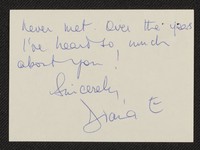 never met. Over the years
I've heard so much
about you!
Sincerely
Diana E